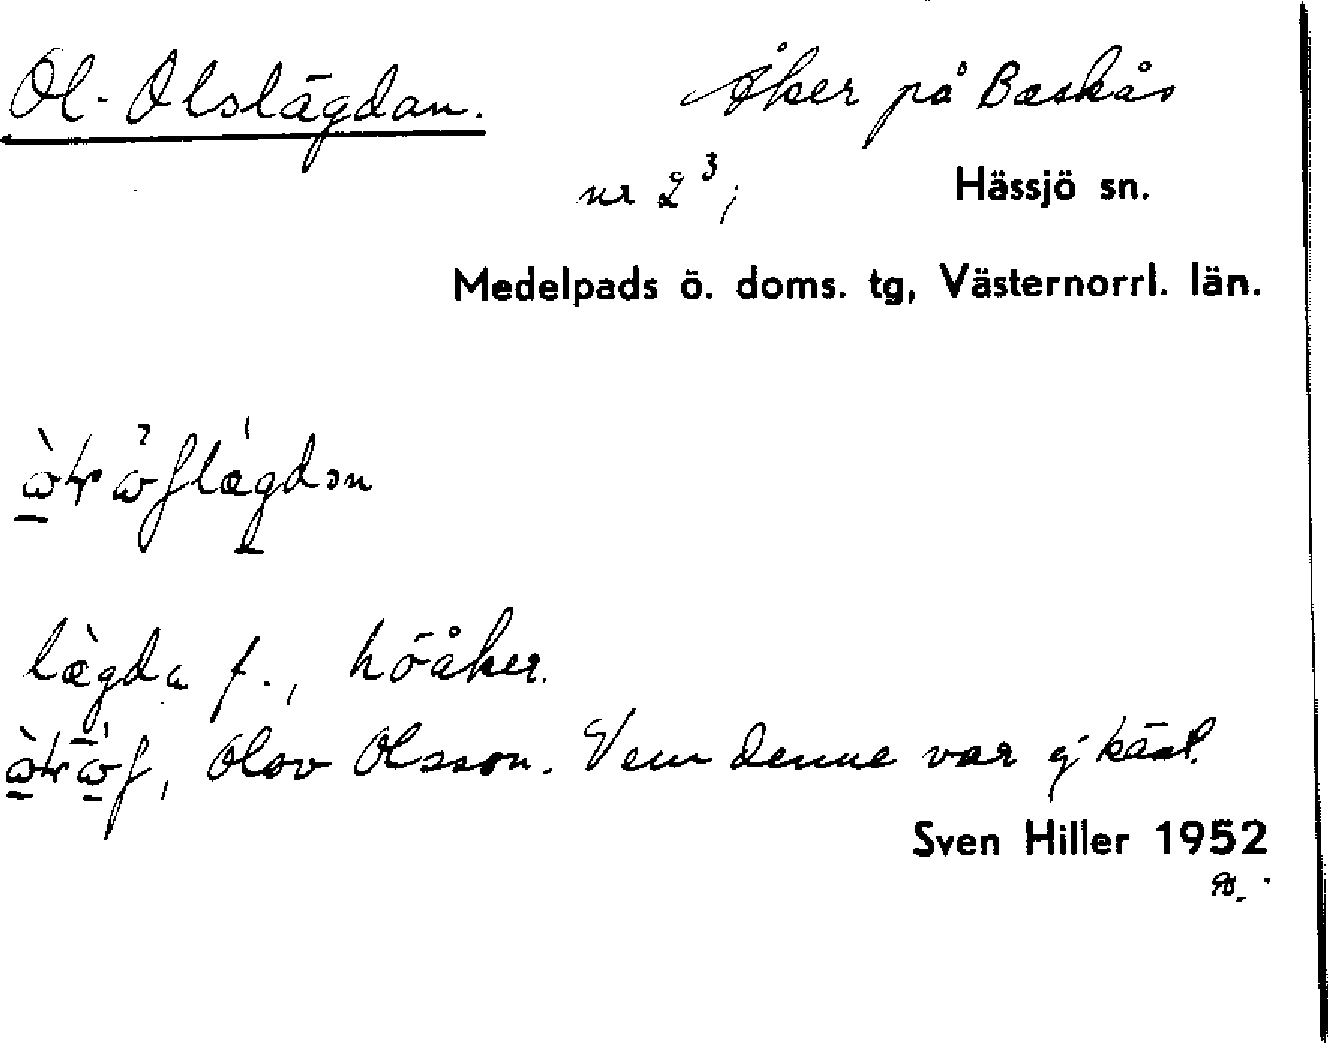 Ol-Olslägdan. Åker på Baskås
nr 2³; Hässjö sn.
Medelpads ö. doms. tg, Västernorrl. län.
lægda f., höåker.
Olov Olsson. Vem denne var ej känt.
Sven Hiller 1952